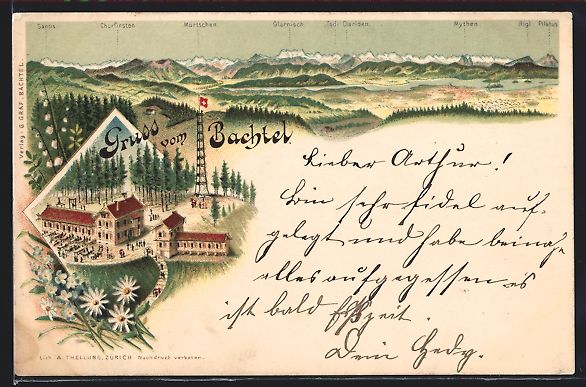 Säntis. Churfirsten. Mürtschen. Glärnisch. Tödi Clariden. Mythen. Rigi. Pilatus.
Verlag. G. GRAF. BACHTEL.
Gruss vom Bachtel.
Lieber Arthur!
Bin sehr fidel auf-
gelegt und habe beinahe
alles aufgegessen es
ist bald Eßzeit.
Dein Hedy.
Lith. A. THELLUNG, ZÜRICH. Nachdruck verboten.